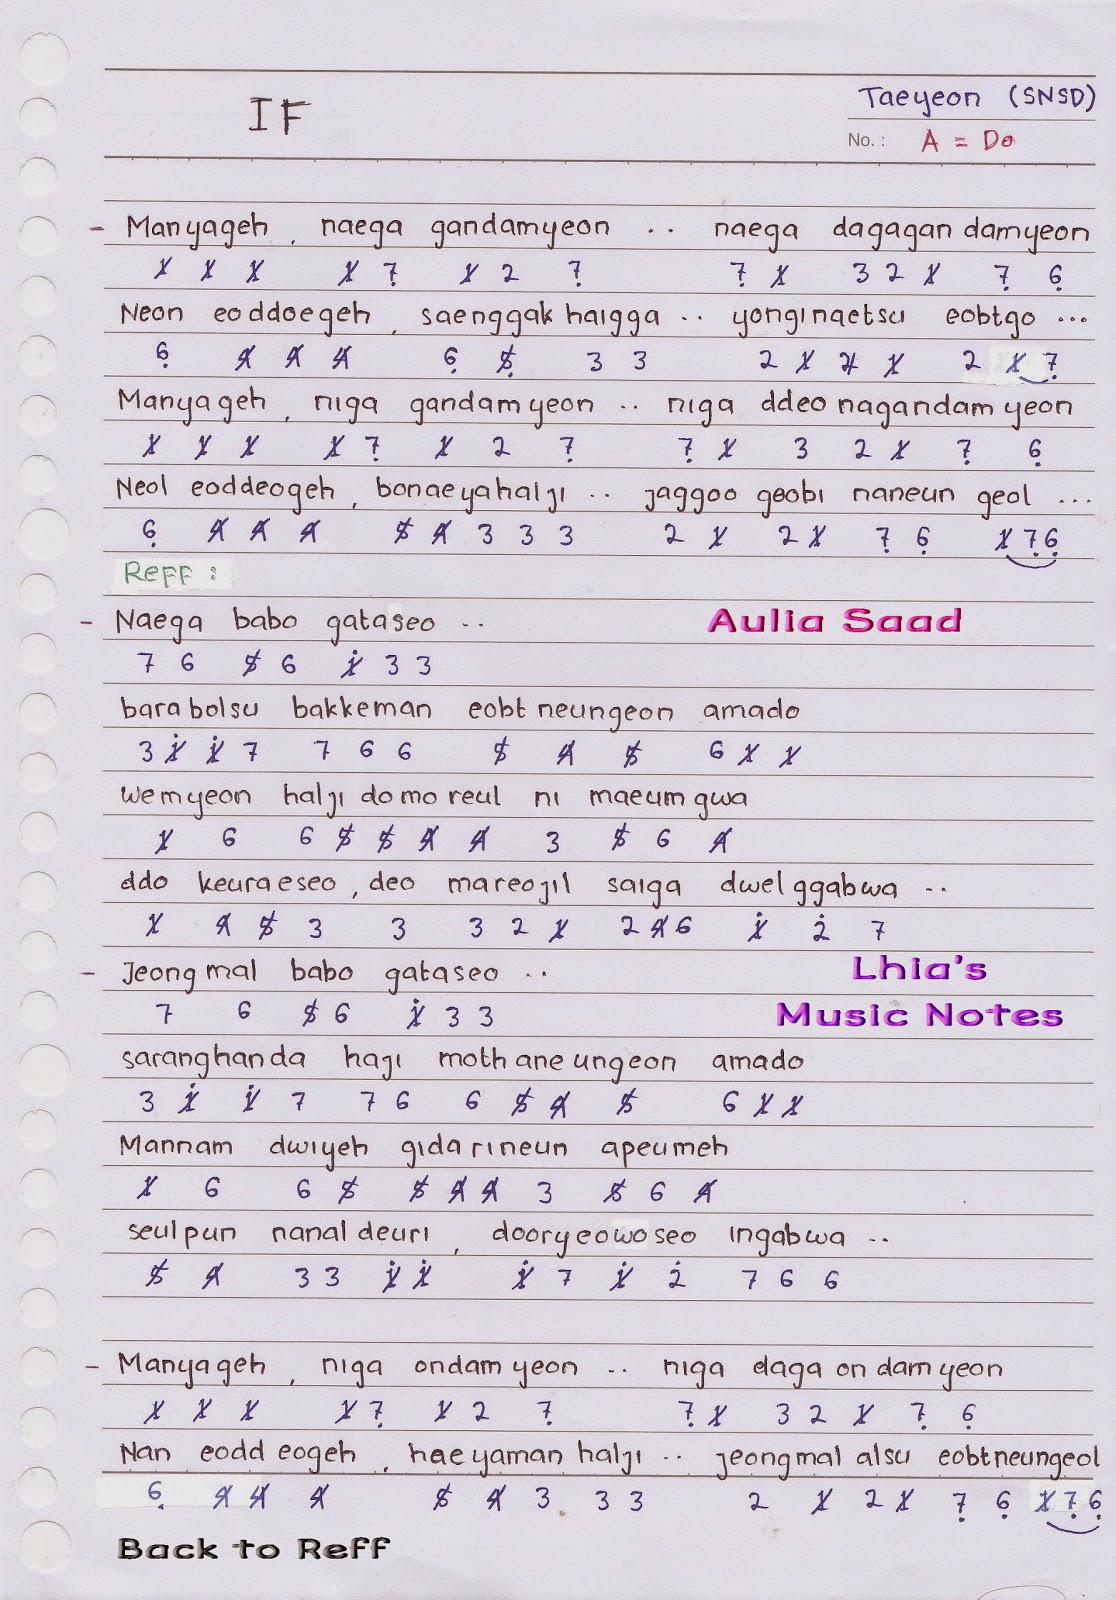 IF
Taeyeon (SNSD)
No. : A = Do
- Manyageh , naega gandamyeon .. naega dagagan damyeon
1̸ 1̸ 1̸ 1̸ 7̣ 1̸ 2 7̣ 7̣ 1̸ 3 2 1̸ 7̣ 6̣
Neon eoddoegeh , saenggak halgga .. yonginaetsu eobtgo ...
6̣ 4̸ 4̸ 4̸ 6̣ 5̸̣ 3 3 2 1̸ 2̸ 1̸ 2 1̸ 7̣
Manyageh , niga gandamyeon .. niga ddeonagandamyeon
1̸ 1̸ 1̸ 1̸ 7̣ 1̸ 2 7̣ 7̣ 1̸ 3 2 1̸ 7̣ 6̣
Neol eoddeogeh , bonaeyahalji .. jaggoo geobi naneun geol ...
6̣ 4̸ 4̸ 4̸ 5̸ 4̸ 3 3 3 2 1̸ 2 1̸ 7̣ 6̣ 1̸ 7̣ 6̣
Reff :
- Naega babo gataseo ..
Aulia Saad
7 6 5̸ 6 1̸̇ 3 3
barabolsu bakkeman eobtneungeon amado
3 1̸̇ 1̸̇ 7 7 6 6 5̸ 4̸ 5̸ 6 1̸ 1̸
wemyeon halji domoreul ni maeumgwa
1̸ 6 6 5̸ 5̸ 4̸ 4̸ 3 5̸ 6 4̸
ddo keuraeseo , deo mareojil saiga dwelggabwa ..
1̸ 4̸ 5̸ 3 3 3 2 1̸ 2 4̸ 6 1̸̇ 2̇ 7
- Jeongmal babo gataseo ..
Lhia's
7 6 5̸ 6 1̸̇ 3 3
Music Notes
saranghanda haji mothaneungeon amado
3 1̸̇ 1̸̇ 7 7 6 6 5̸ 4̸ 5̸ 6 1̸ 1̸
Mannam dwiyeh gidarineun apeumeh
1̸ 6 6 5̸ 5̸ 4̸ 4̸ 3 5̸ 6 4̸
seulpun nanaldeuri , dooryeowoseo ingabwa ..
5̸ 4̸ 3 3 1̸̇ 1̸̇ 1̸̇ 7 1̸̇ 2̇ 7 6 6
- Manyageh , niga ondamyeon .. niga dagaondamyeon
1̸ 1̸ 1̸ 1̸ 7̣ 1̸ 2 7̣ 7̣ 1̸ 3 2 1̸ 7̣ 6̣
Nan eoddeogeh , haeyaman halji .. jeongmal alsu eobtneungeol
6̣ 4̸ 4̸ 4̸ 5̸ 4̸ 3 3 3 2 1̸ 2 1̸ 7̣ 6̣ 1̸ 7̣ 6̣
Back to Reff